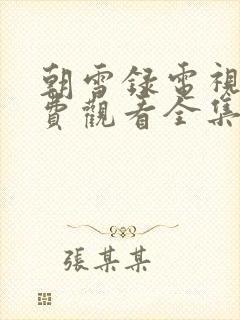 朝雪錄電視
費觀看全集
張某某